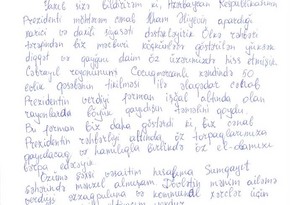 Təxis sizə bildirirəm ki, Azərbaycan Respublikasının
Prezidenti möhtərəm cənab İlham Əliyevin apardığı
xarici və daxili siyasəti dəstəkləyirik. Ölkə rəhbəri
tərəfindən biz məcburi köçkünlərə göstərilən yüksək
diqqət və qayğını daim öz üzərimizdə hiss etmişik.
Cəbrayıl rayonunun Cocuq Mərcanlı kəndində 50
evlik qəsəbənin tikilməsi ilə əlaqədar cənab
Prezidentin verdiyi fərman işğal altında olan
rayonlarda böyük qayıdışın təməlini qoydu.
Bu fərman bir daha göstərdi ki, biz cənab
Prezidentin rəhbərliyi altında, öz torpaqlarımıza
qayıdacaq və hamılıqla birlikdə öz el-obamızı
bərpa edəcəyik.
Özümə şəxsi vəsaitim hesabına Sumqayıt
şəhərində mənzil almışam. Dövlətin mənim ailəmə
verdiyi və kommunal xərclər üçün